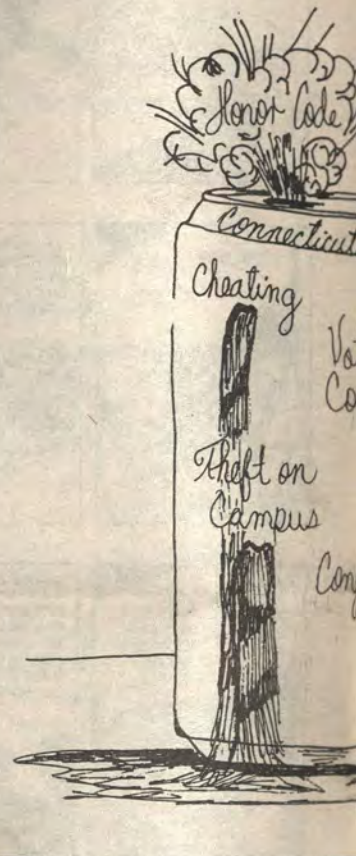 Honor Code
Connecticut
Cheating
Theft on
Campus